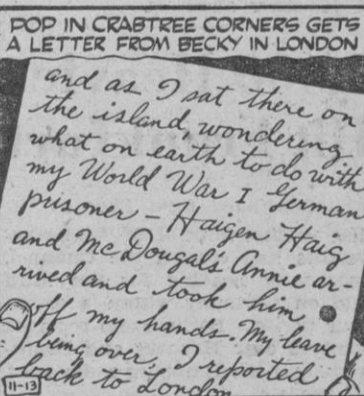 POP IN CRABTREE CORNERS GETS
A LETTER FROM BECKY IN LONDON
and as I sat there on
the island, wondering
what on earth to do with
my World War I German
prisoner – Haigen Haig
and McDougal's Annie ar-
rived and took him
off my hands. My leave
being over, I reported
back to London
11-13